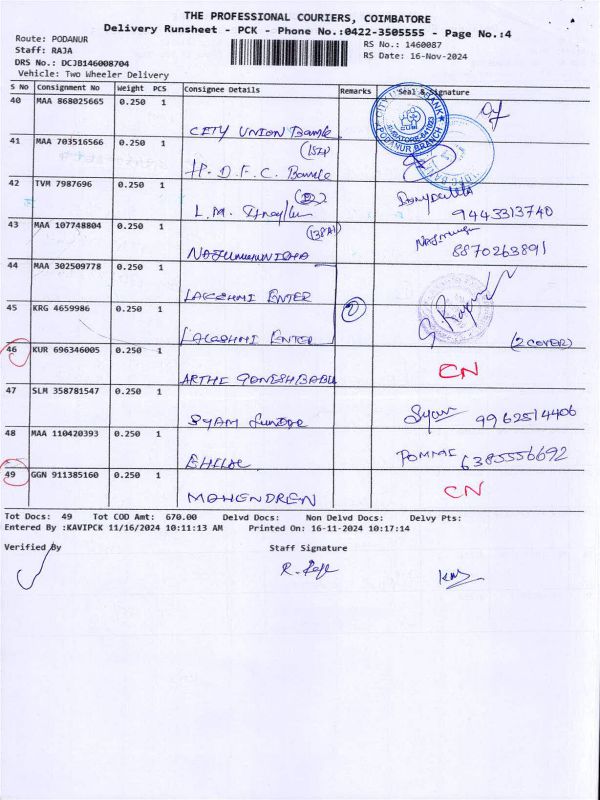 THE PROFESSIONAL COURIERS, COIMBATORE
Delivery Runsheet - PCK - Phone No.:0422-3505555 - Page No.:4
Route: PODANUR
RS No.: 1460087
Staff: RAJA
RS Date: 16-Nov-2024
DRS No.: DCJB146008704
Vehicle: Two Wheeler Delivery
S No Consignment No Weight PCS Consignee Details Remarks Seal & Signature
40 MAA 868025665 0.250 1
CITY UNION Bank
PODANUR BRANCH
41 MAA 703516566 0.250 1
H.D.F.C. Bank
42 TVM 7987696 0.250 1
L.M.
9443313740
43 MAA 107748804 0.250 1
8870263891
44 MAA 302509778 0.250 1
LAKSHMI ENTER
45 KRG 4659986 0.250 1
LAKSHMI ENTER
(2 COVER)
46 KUR 696346005 0.250 1
ARTHI GANESHBABU
CN
47 SLM 358781547 0.250 1
SYAM Sundar
Syam 9962514406
48 MAA 110420393 0.250 1
6385556692
49 GGN 911385160 0.250 1
MAHENDREN
CN
Tot Docs: 49 Tot COD Amt: 670.00 Delvd Docs: Non Delvd Docs: Delvy Pts:
Entered By :KAVIPCK 11/16/2024 10:11:13 AM Printed On: 16-11-2024 10:17:14
Verified By Staff Signature
R. Raja